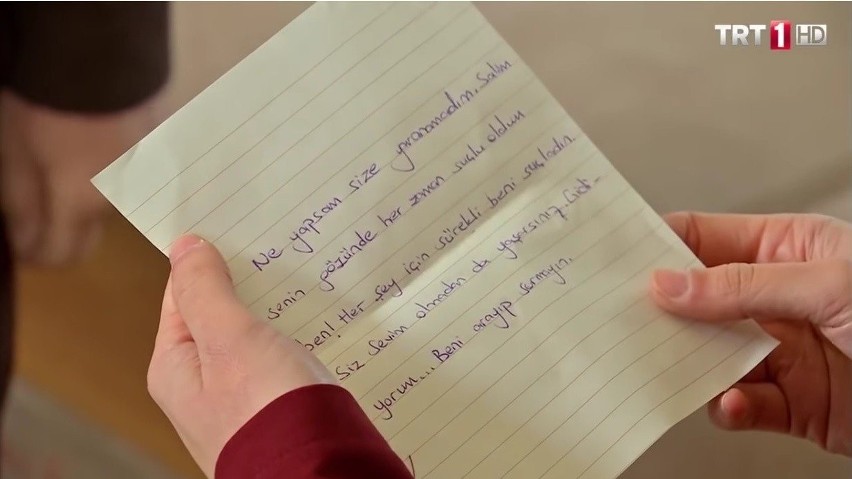 TRT 1 HD
Ne yapsam size yaranamadım. Salim
senin gözünde her zaman suçlu oldum
ben! Her şey için sürekli beni suçladın.
Siz Sevim olmadan da yaşarsınız. Gidi-
yorum... Beni arayıp sormayın.